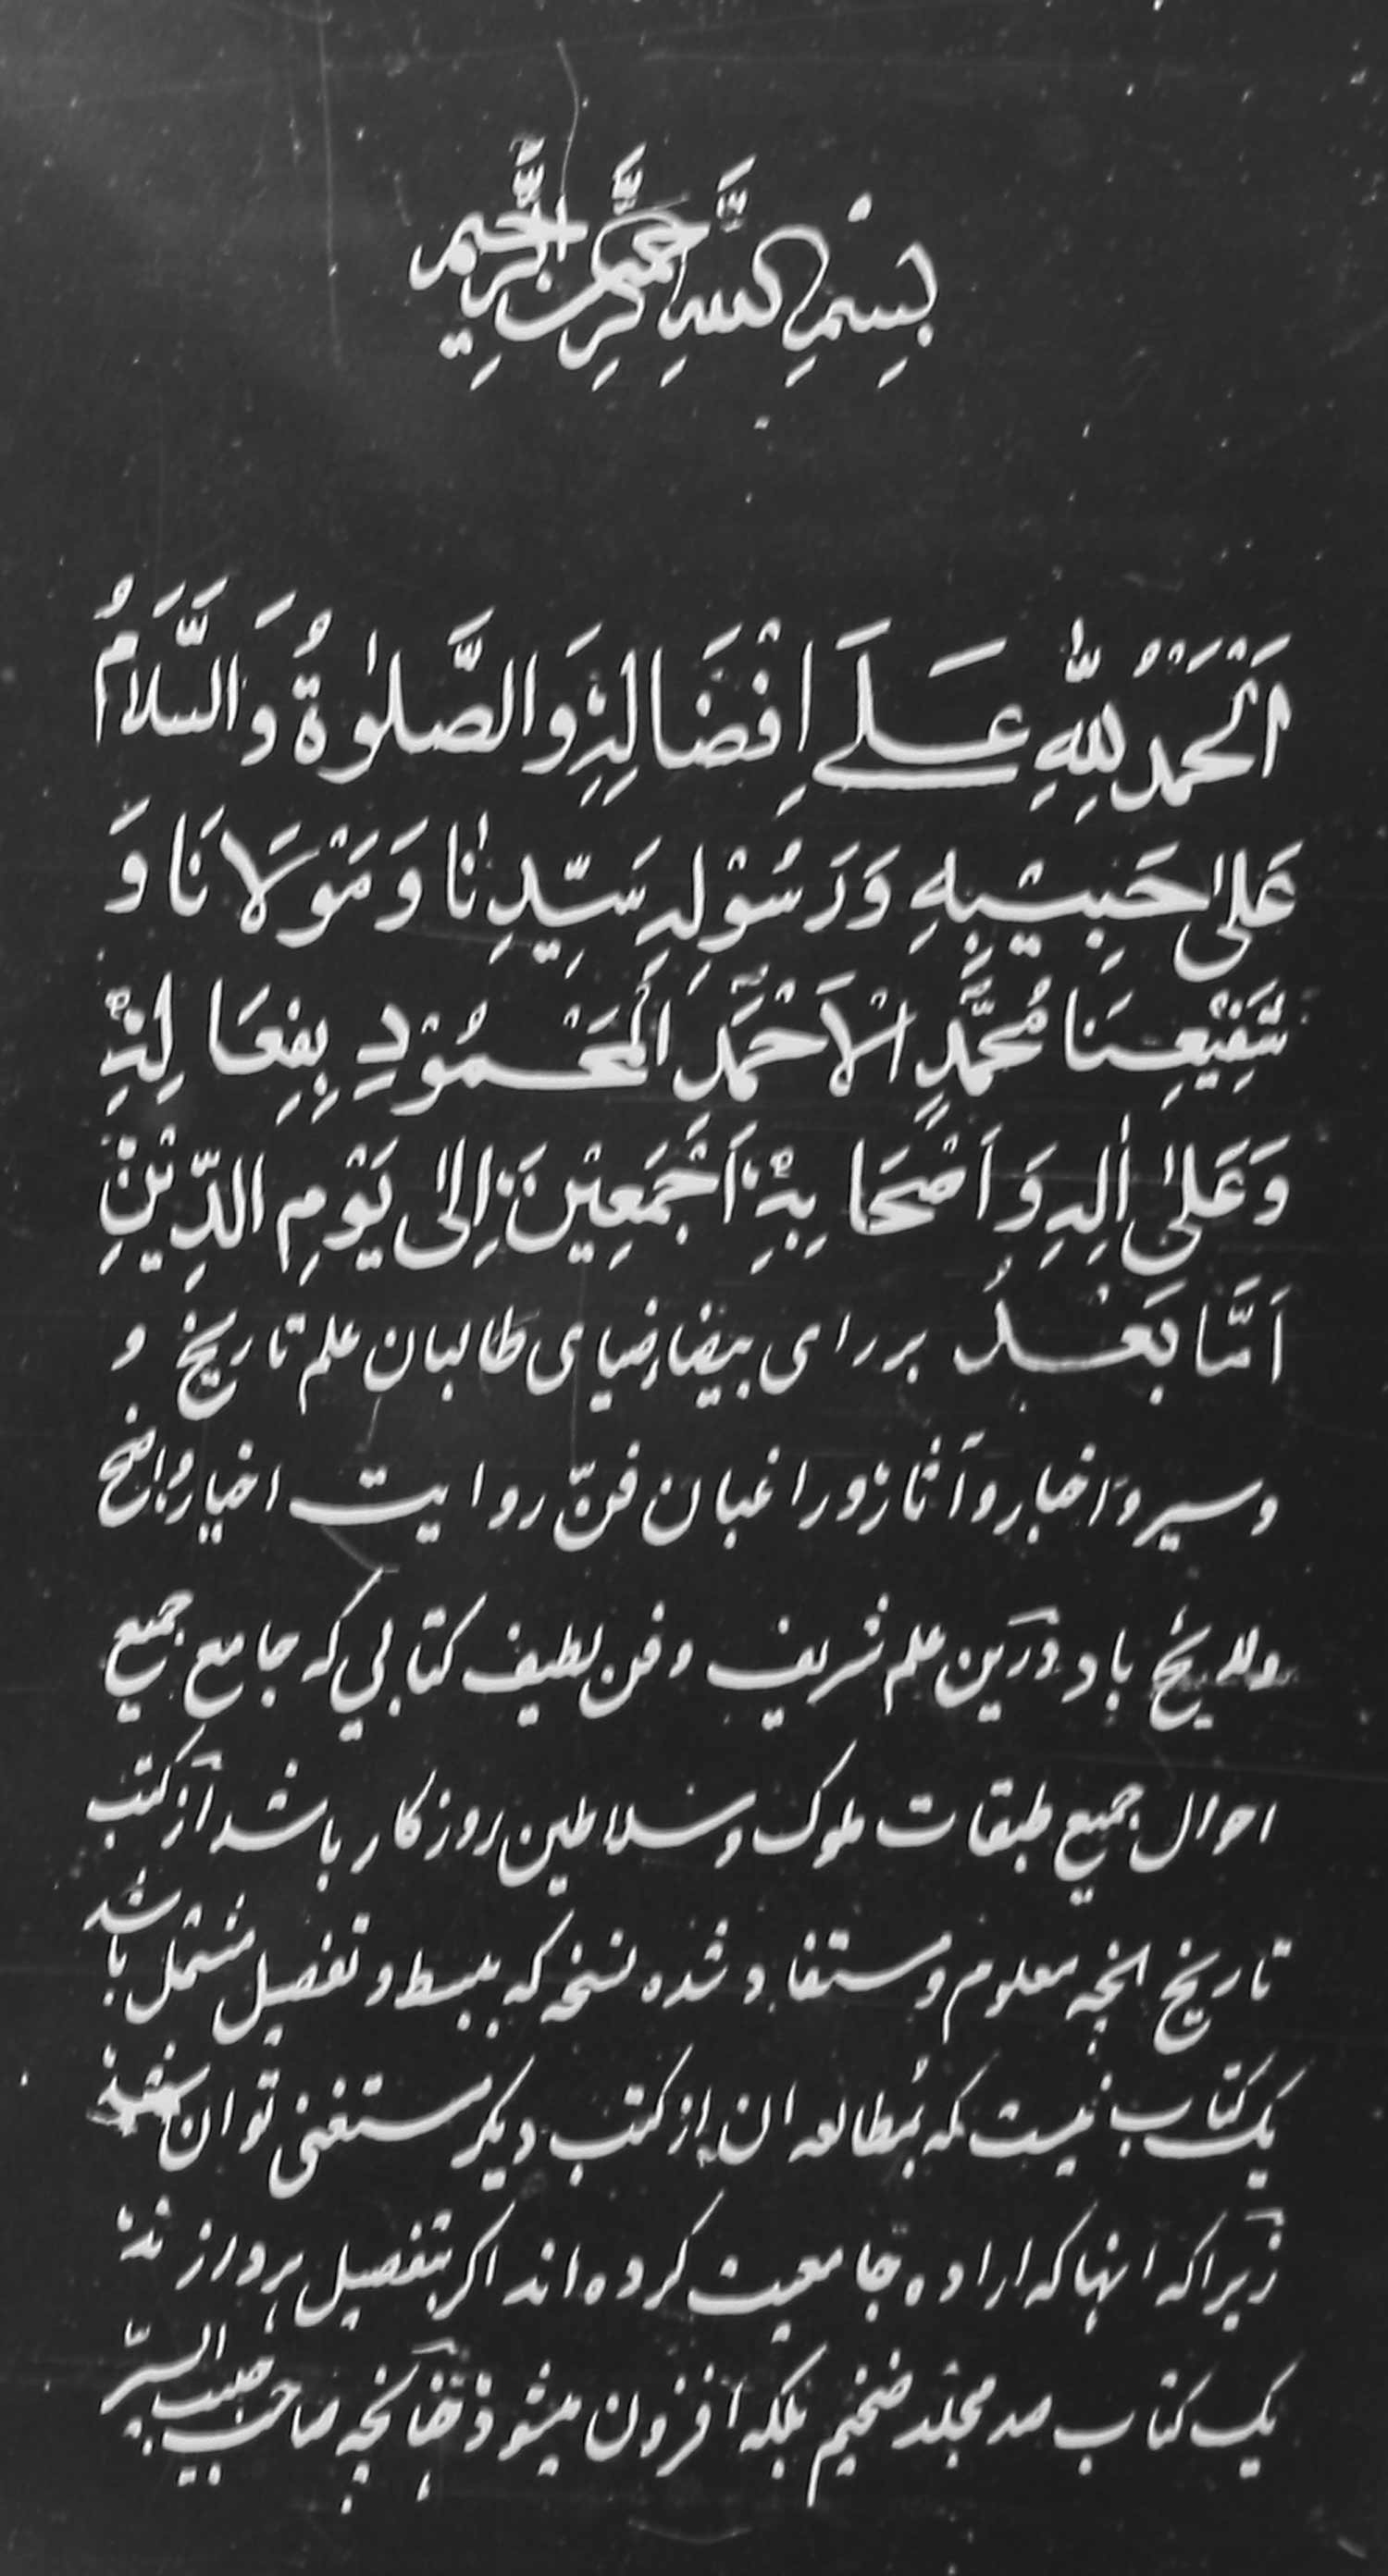 بِسْمِ اللهِ الرَّحْمٰنِ الرَّحِيمِ
اَلْحَمْدُ لِلّٰهِ عَلَے اِفْضَالِهٖ وَالصَّلٰوةُ وَالسَّلَامُ
عَلیٰ حَبِیْبِهِ وَرَسُوْلِهِ سَیِّدِنَا وَمَوْلَانَا وَ
شَفِیْعِنَا مُحَمَّدٍ الْاَحْمَدِ الْمَحْمُوْدِ بِفِعَالِهٖ
وَعَلیٰ اٰلِهِ وَاَصْحَابِهٖ اَجْمَعِیْنَ اِلیٰ یَوْمِ الدِّیْنِ
اَمَّا بَعْدُ بر رای بیضا ضیای طالبان علم تاریخ و
وسیر و اخبار و آثار و راغبان فنّ روایت اخیار واضح
ولایح باد درین علم شریف و فن لطیف کتابی که جامع جمیع
احوال جمیع طبقات ملوک و سلاطین روزکار باشد از کتب
تاریخ انچه معلوم و مستفاد شده نسخه که ببسط و تفصیل مشتمل باشد
یک کتاب نیست که بمطالعه ان از کتب دیکر مستغنی توان شد
زیراکه انها که اراده جامعیت کرده اند اکر بتفصیل پردازند
یک کتاب صد مجلد ضخیم بلکه افزون میشود چنانچه صاحب حبیب السیر